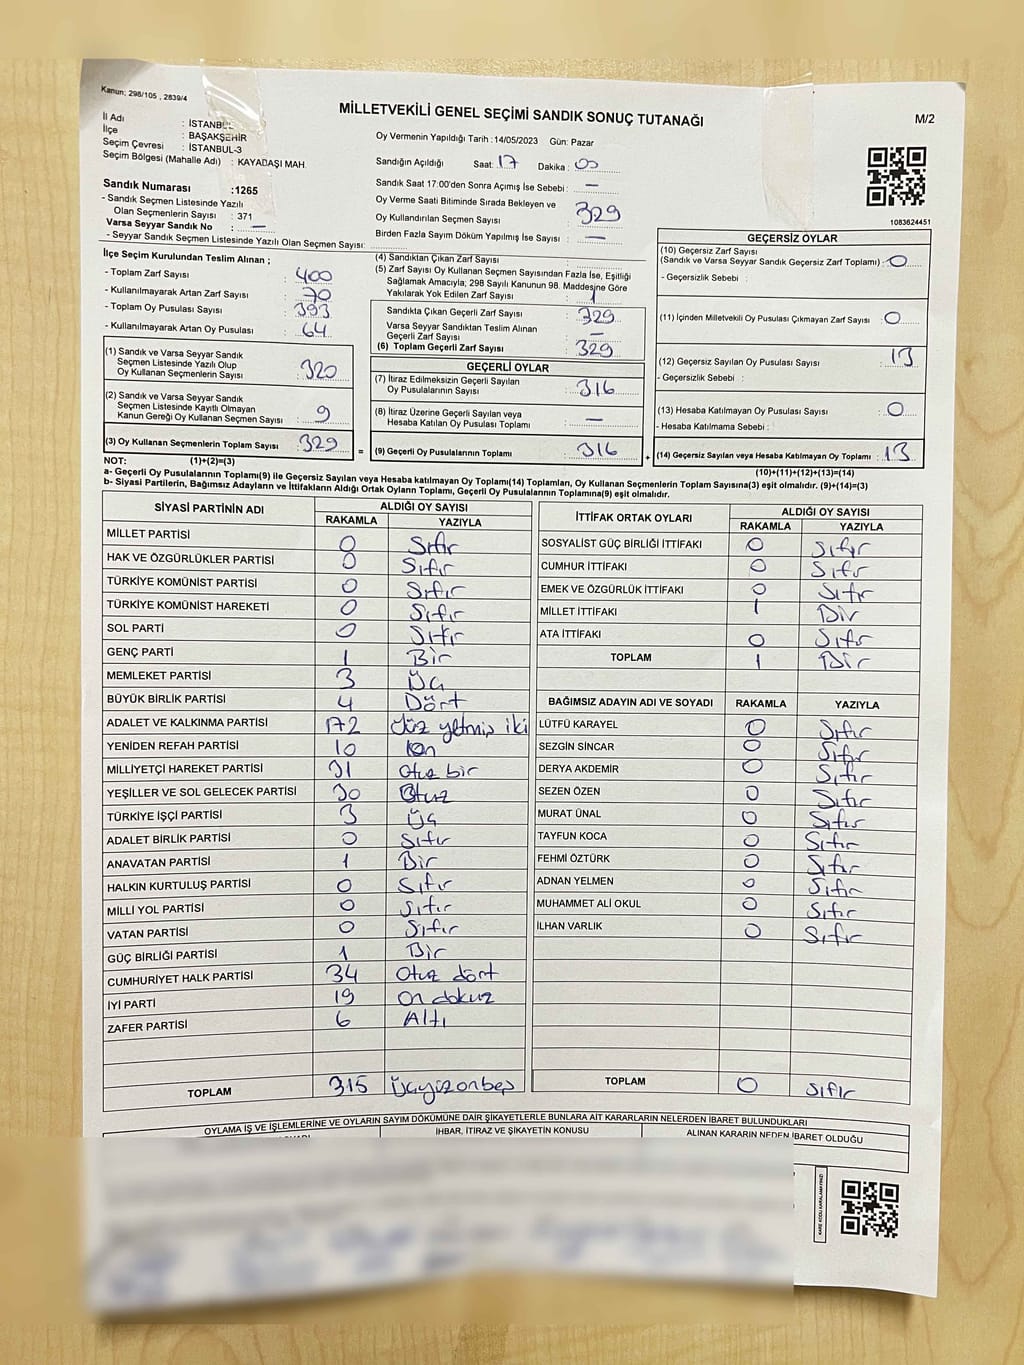 Kanun; 298/105 , 2839/4
MİLLETVEKİLİ GENEL SEÇİMİ SANDIK SONUÇ TUTANAĞI
M/2
İl Adı : İSTANBUL
İlçe : BAŞAKŞEHİR
Seçim Çevresi : İSTANBUL-3
Seçim Bölgesi (Mahalle Adı) : KAYADAŞI MAH.
Sandık Numarası :1265
- Sandık Seçmen Listesinde Yazılı
Olan Seçmenlerin Sayısı : 371
Varsa Seyyar Sandık No : —
- Seyyar Sandık Seçmen Listesinde Yazılı Olan Seçmen Sayısı:
Oy Vermenin Yapıldığı Tarih :14/05/2023 Gün: Pazar
Sandığın Açıldığı Saat: 17 Dakika : 00
Sandık Saat 17:00'den Sonra Açımış İse Sebebi : —
Oy Verme Saati Bitiminde Sırada Bekleyen ve
Oy Kullandırılan Seçmen Sayısı : 329
Birden Fazla Sayım Döküm Yapılmış İse Sayısı : —
1083624451
İlçe Seçim Kurulundan Teslim Alınan ;
- Toplam Zarf Sayısı : 400
- Kullanılmayarak Artan Zarf Sayısı : 70
- Toplam Oy Pusulası Sayısı : 393
- Kullanılmayarak Artan Oy Pusulası : 64
(1) Sandık ve Varsa Seyyar Sandık
Seçmen Listesinde Yazılı Olup
Oy Kullanan Seçmenlerin Sayısı : 320
(2) Sandık ve Varsa Seyyar Sandık
Seçmen Listesinde Kayıtlı Olmayan
Kanun Gereği Oy Kullanan Seçmen Sayısı : 9
(3) Oy Kullanan Seçmenlerin Toplam Sayısı : 329
(4) Sandıktan Çıkan Zarf Sayısı :
(5) Zarf Sayısı Oy Kullanan Seçmen Sayısından Fazla İse, Eşitliği
Sağlamak Amacıyla; 298 Sayılı Kanunun 98. Maddesine Göre
Yakılarak Yok Edilen Zarf Sayısı : 1
Sandıkta Çıkan Geçerli Zarf Sayısı : 329
Varsa Seyyar Sandıktan Teslim Alınan
Geçerli Zarf Sayısı : —
(6) Toplam Geçerli Zarf Sayısı : 329
GEÇERLİ OYLAR
(7) İtiraz Edilmeksizin Geçerli Sayılan
Oy Pusulalarının Sayısı : 316
(8) İtiraz Üzerine Geçerli Sayılan veya
Hesaba Katılan Oy Pusulası Toplamı : —
= (9) Geçerli Oy Pusulalarının Toplamı : 316
GEÇERSİZ OYLAR
(10) Geçersiz Zarf Sayısı
(Sandık ve Varsa Seyyar Sandık Geçersiz Zarf Toplamı) : 0
- Geçersizlik Sebebi :
(11) İçinden Milletvekili Oy Pusulası Çıkmayan Zarf Sayısı : 0
(12) Geçersiz Sayılan Oy Pusulası Sayısı : 13
- Geçersizlik Sebebi :
(13) Hesaba Katılmayan Oy Pusulası Sayısı : 0
- Hesaba Katılmama Sebebi :
+ (14) Geçersiz Sayılan veya Hesaba Katılmayan Oy Toplamı : 13
NOT: (1)+(2)=(3)
(10)+(11)+(12)+(13)=(14)
a- Geçerli Oy Pusulalarının Toplamı(9) ile Geçersiz Sayılan veya Hesaba katılmayan Oy Toplamı(14) Toplamları, Oy Kullanan Seçmenlerin Toplam Sayısına(3) eşit olmalıdır. (9)+(14)=(3)
b- Siyasi Partilerin, Bağımsız Adayların ve İttifakların Aldığı Ortak Oyların Toplamı, Geçerli Oy Pusulalarının Toplamına(9) eşit olmalıdır.
SİYASİ PARTİNİN ADI ALDIĞI OY SAYISI
RAKAMLA YAZIYLA
MİLLET PARTİSİ 0 Sıfır
HAK VE ÖZGÜRLÜKLER PARTİSİ 0 Sıfır
TÜRKİYE KOMÜNİST PARTİSİ 0 Sıfır
TÜRKİYE KOMÜNİST HAREKETİ 0 Sıfır
SOL PARTİ 0 Sıfır
GENÇ PARTİ 1 Bir
MEMLEKET PARTİSİ 3 Üç
BÜYÜK BİRLİK PARTİSİ 4 Dört
ADALET VE KALKINMA PARTİSİ 172 Yüz yetmiş iki
YENİDEN REFAH PARTİSİ 10 on
MİLLİYETÇİ HAREKET PARTİSİ 31 otuz bir
YEŞİLLER VE SOL GELECEK PARTİSİ 30 Otuz
TÜRKİYE İŞÇİ PARTİSİ 3 Üç
ADALET BİRLİK PARTİSİ 0 Sıfır
ANAVATAN PARTİSİ 1 Bir
HALKIN KURTULUŞ PARTİSİ 0 Sıfır
MİLLİ YOL PARTİSİ 0 Sıfır
VATAN PARTİSİ 0 Sıfır
GÜÇ BİRLİĞİ PARTİSİ 1 Bir
CUMHURİYET HALK PARTİSİ 34 Otuz dört
İYİ PARTİ 19 On dokuz
ZAFER PARTİSİ 6 Altı
TOPLAM 315 Üçyüzonbeş
İTTİFAK ORTAK OYLARI ALDIĞI OY SAYISI
RAKAMLA YAZIYLA
SOSYALİST GÜÇ BİRLİĞİ İTTİFAKI 0 Sıfır
CUMHUR İTTİFAKI 0 Sıfır
EMEK VE ÖZGÜRLÜK İTTİFAKI 0 Sıfır
MİLLET İTTİFAKI 1 Bir
ATA İTTİFAKI 0 Sıfır
TOPLAM 1 Bir
BAĞIMSIZ ADAYIN ADI VE SOYADI RAKAMLA YAZIYLA
LÜTFÜ KARAYEL 0 Sıfır
SEZGİN SİNCAR 0 Sıfır
DERYA AKDEMİR 0 Sıfır
SEZEN ÖZEN 0 Sıfır
MURAT ÜNAL 0 Sıfır
TAYFUN KOCA 0 Sıfır
FEHMİ ÖZTÜRK 0 Sıfır
ADNAN YELMEN 0 Sıfır
MUHAMMET ALİ OKUL 0 Sıfır
İLHAN VARLIK 0 Sıfır
TOPLAM 0 sıfır
OYLAMA İŞ VE İŞLEMLERİNE VE OYLARIN SAYIM DÖKÜMÜNE DAİR ŞİKAYETLERLE BUNLARA AİT KARARLARIN NELERDEN İBARET BULUNDUKLARI
İHBAR, İTİRAZ VE ŞİKAYETİN KONUSU
ALINAN KARARIN NEDEN İBARET OLDUĞU
KARE KODU KARALAMAYINIZ!